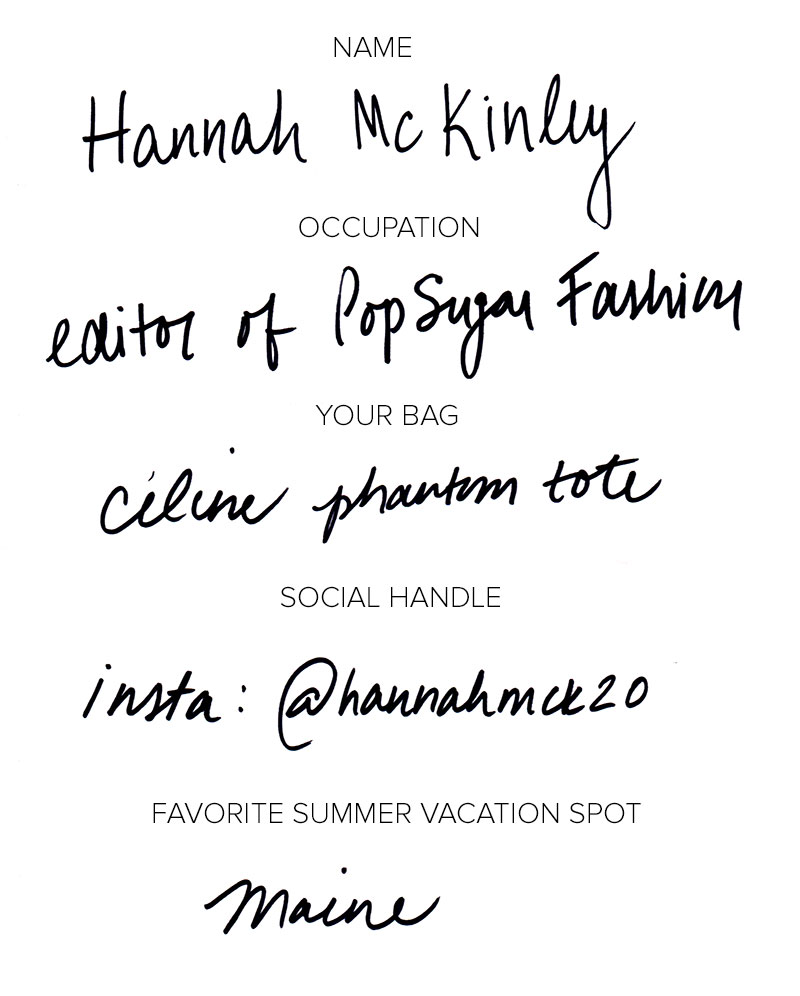 NAME
Hannah McKinley
OCCUPATION
editor of PopSugar Fashion
YOUR BAG
céline phantom tote
SOCIAL HANDLE
insta: @hannahmck20
FAVORITE SUMMER VACATION SPOT
Maine